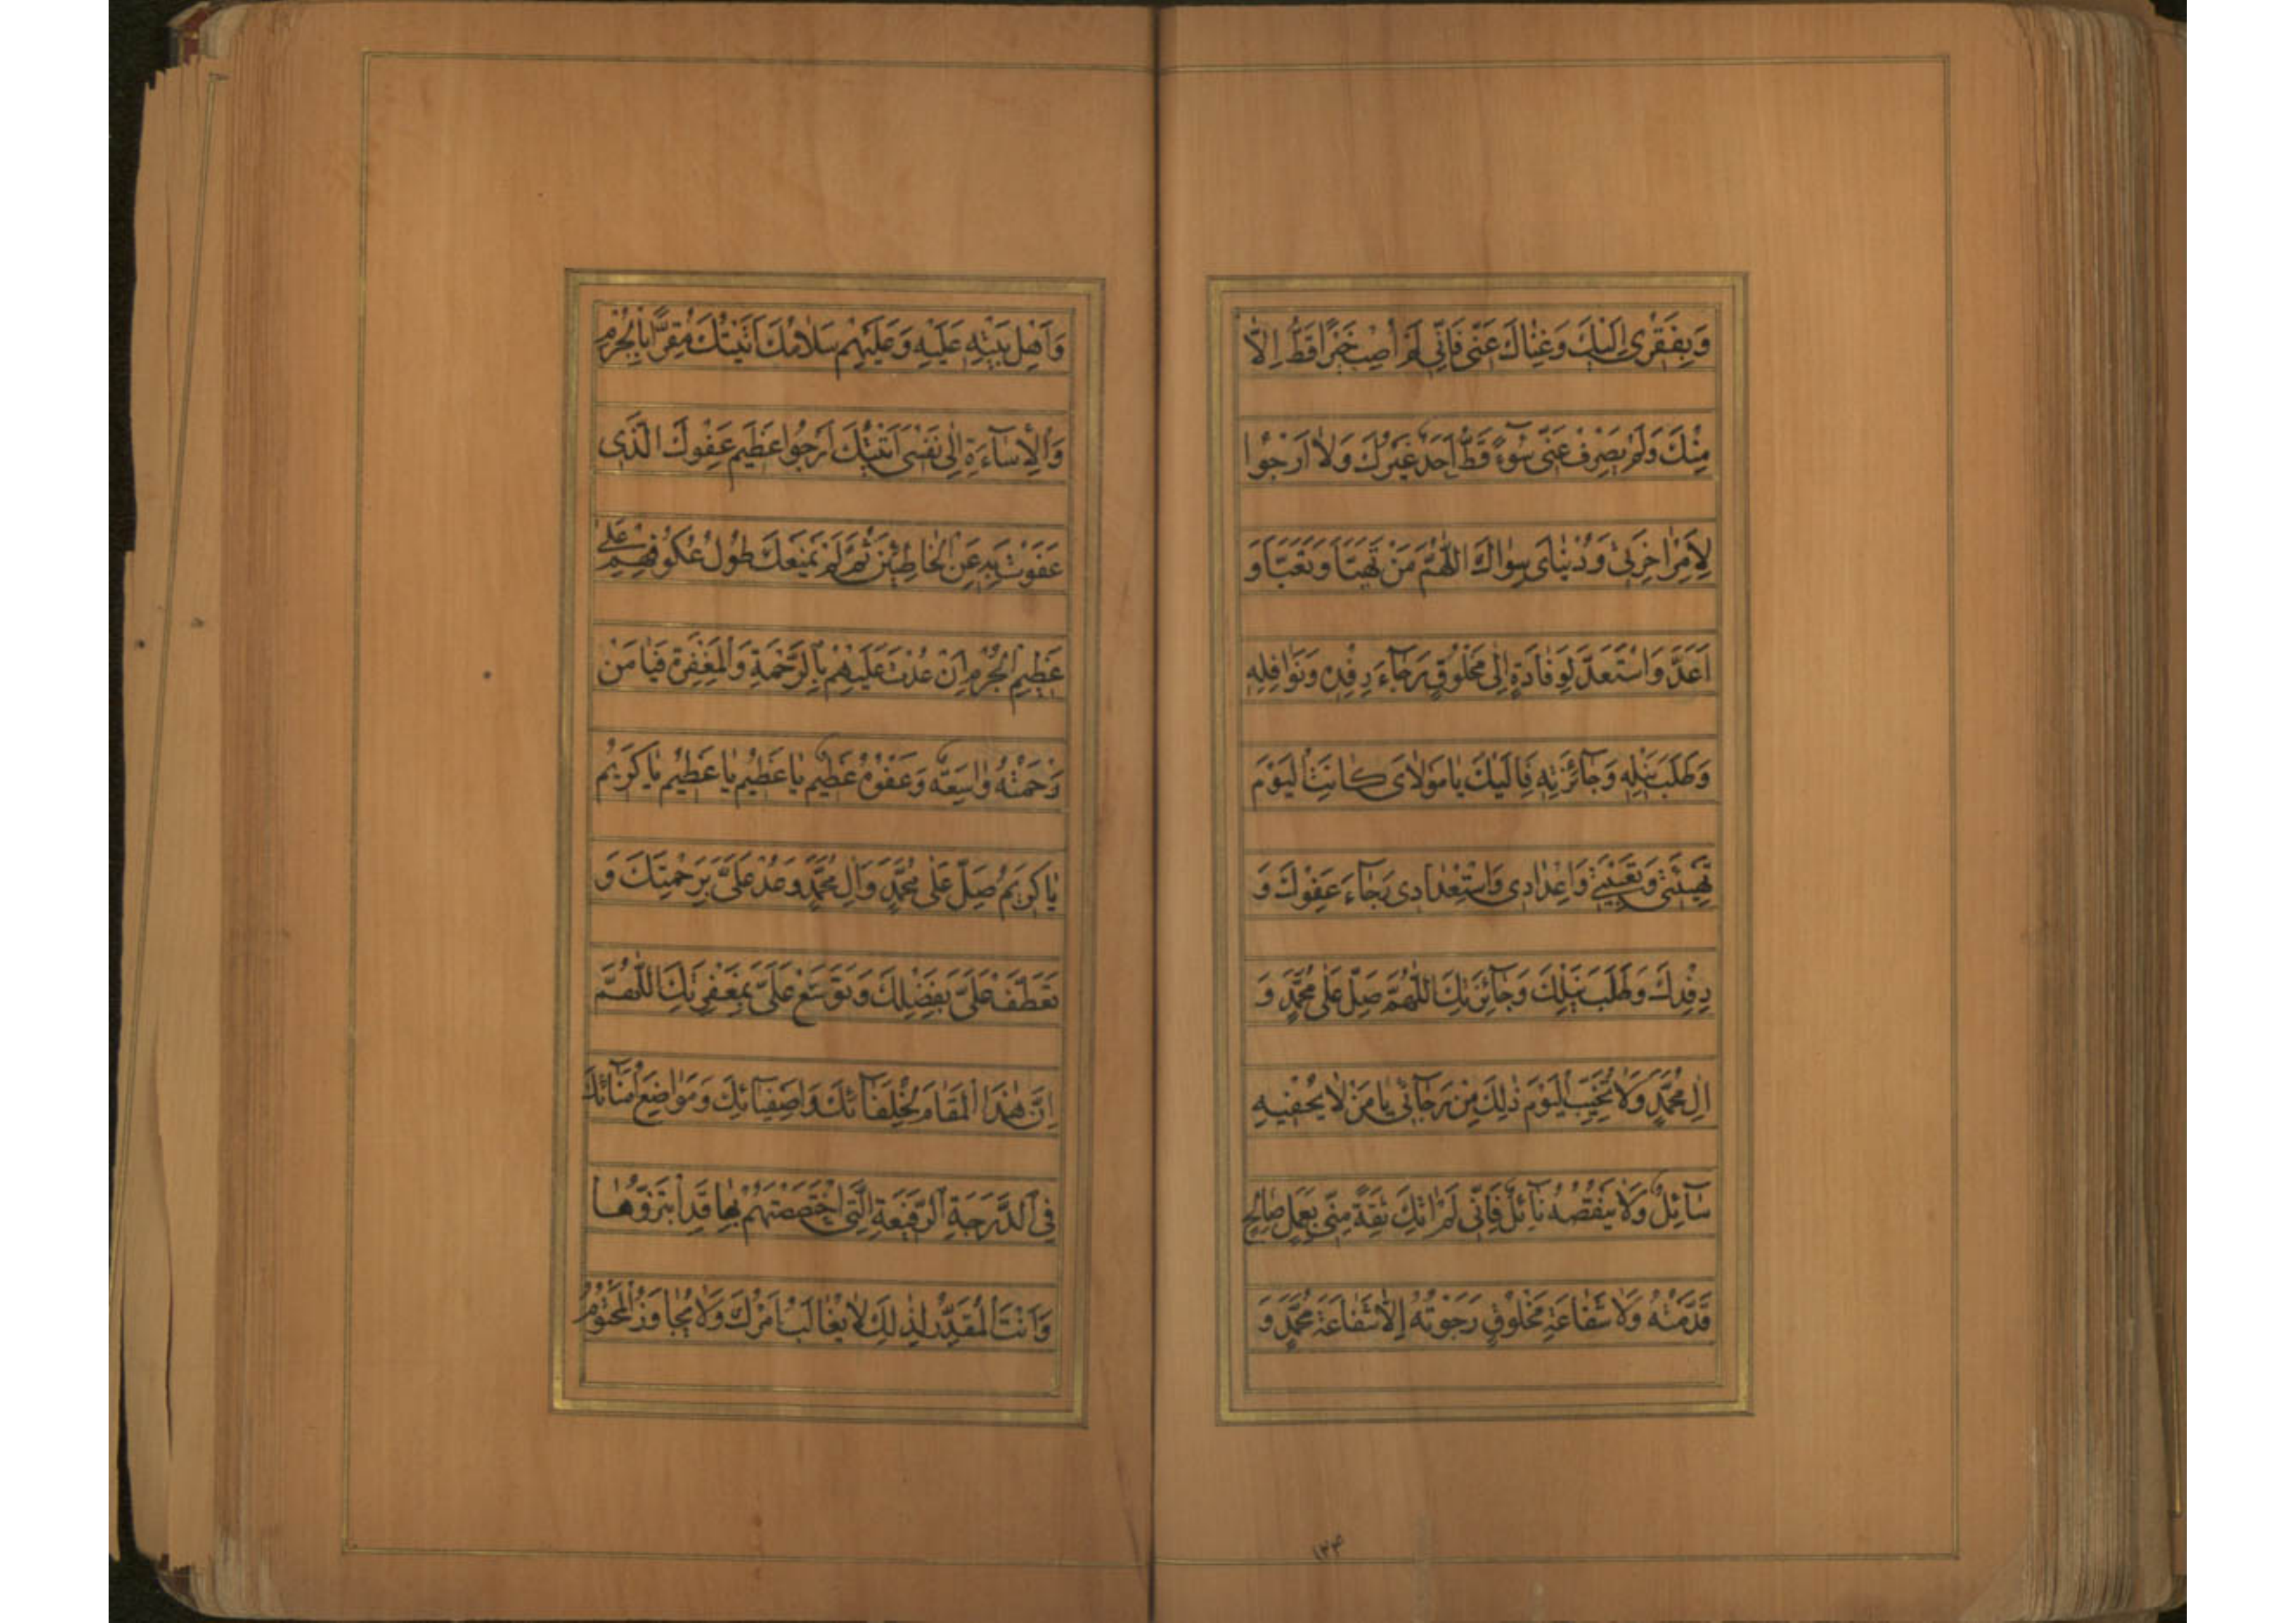 وَبِفَقْرِی اِلَیْكَ وَغِنَاكَ عَنّی فَاِنّی لَمْ اُصِبْ خَیْرًا قَطُّ اِلّا
مِنْكَ وَلَمْ یَصْرِفْ عَنّی سُوٓءً قَطُّ اَحَدٌ غَیْرُكَ وَلاٰ اَرْجُوا
لِاَمْرِ اٰخِرَتی وَدُنْیٰایَ سِوٰاكَ اَللّٰهُمَّ مَنْ تَهَیَّاَ وَتَعَبَّاَ وَ
اَعَدَّ وَاسْتَعَدَّ لِوَفٰادَةٍ اِلٰی مَخْلُوقٍ رَجٰٓاءَ رِفْدِهِ وَنَوَافِلِهِ
وَطَلَبَ نَیْلِهِ وَجٰٓائِزَتِهِ فَاِلَیْكَ یٰا مَوْلاٰیَ كٰانَتِ الْیَوْمَ
تَهْیِئَتی وَتَعْبِیَتی وَاِعْدٰادی وَاسْتِعْدٰادی رَجٰٓاءَ عَفْوِكَ وَ
رِفْدِكَ وَطَلَبَ نَیْلِكَ وَجٰٓائِزَتِكَ اَللّٰهُمَّ صَلِّ عَلٰی مُحَمَّدٍ وَ
اٰلِ مُحَمَّدٍ وَلاٰ تُخَیِّبِ الْیَوْمَ ذٰلِكَ مِنْ رَجٰٓائی یٰا مَنْ لاٰ یُحْفیهِ
سٰٓائِلٌ وَلاٰ یَنْقُصُهُ نٰٓائِلٌ فَاِنّی لَمْ اٰتِكَ ثِقَةً مِنّی بِعَمَلٍ صٰالِحٍ
قَدَّمْتُهُ وَلاٰ شَفٰاعَةِ مَخْلُوقٍ رَجَوْتُهُ اِلاّٰ شَفٰاعَةَ مُحَمَّدٍ وَ
۱۳۴
وَاَهْلِ بَیْتِهِ عَلَیْهِ وَعَلَیْهِمْ سَلاٰمُكَ اَتَیْتُكَ مُقِرًّا بِالْجُرْمِ
وَالْاِسٰٓاءَةِ اِلٰی نَفْسی اَتَیْتُكَ اَرْجُوا عَظیمَ عَفْوِكَ الَّذی
عَفَوْتَ بِهِ عَنِ الْخٰاطِئینَ ثُمَّ لَمْ یَمْنَعْكَ طُولُ عُكُوفِهِمْ عَلٰی
عَظیمِ الْجُرْمِ اِنْ عُدْتَ عَلَیْهِمْ بِالرَّحْمَةِ وَالْمَغْفِرَةِ فَیٰا مَنْ
رَحْمَتُهُ وٰاسِعَةٌ وَعَفْوُهُ عَظیمٌ یٰا عَظیمُ یٰا عَظیمُ یٰا كَریمُ
یٰا كَریمُ صَلِّ عَلٰی مُحَمَّدٍ وَاٰلِ مُحَمَّدٍ وَعُدْ عَلَیَّ بِرَحْمَتِكَ وَ
تَعَطَّفْ عَلَیَّ بِفَضْلِكَ وَتَوَسَّعْ عَلَیَّ بِمَغْفِرَتِكَ اَللّٰهُمَّ
اِنَّ هٰذَا الْمَقٰامَ لِخُلَفٰٓائِكَ وَاَصْفِیٰٓائِكَ وَمَوٰاضِعَ اُمَنٰٓائِكَ
فِی الدَّرَجَةِ الرَّفیعَةِ الَّتِی اخْتَصَصْتَهُمْ بِهٰا قَدِ ابْتَزُّوهٰا
وَاَنْتَ الْمُقَدِّرُ لِذٰلِكَ لاٰ یُغٰالَبُ اَمْرُكَ وَلاٰ یُجٰاوَزُ الْمَحْتُومُ